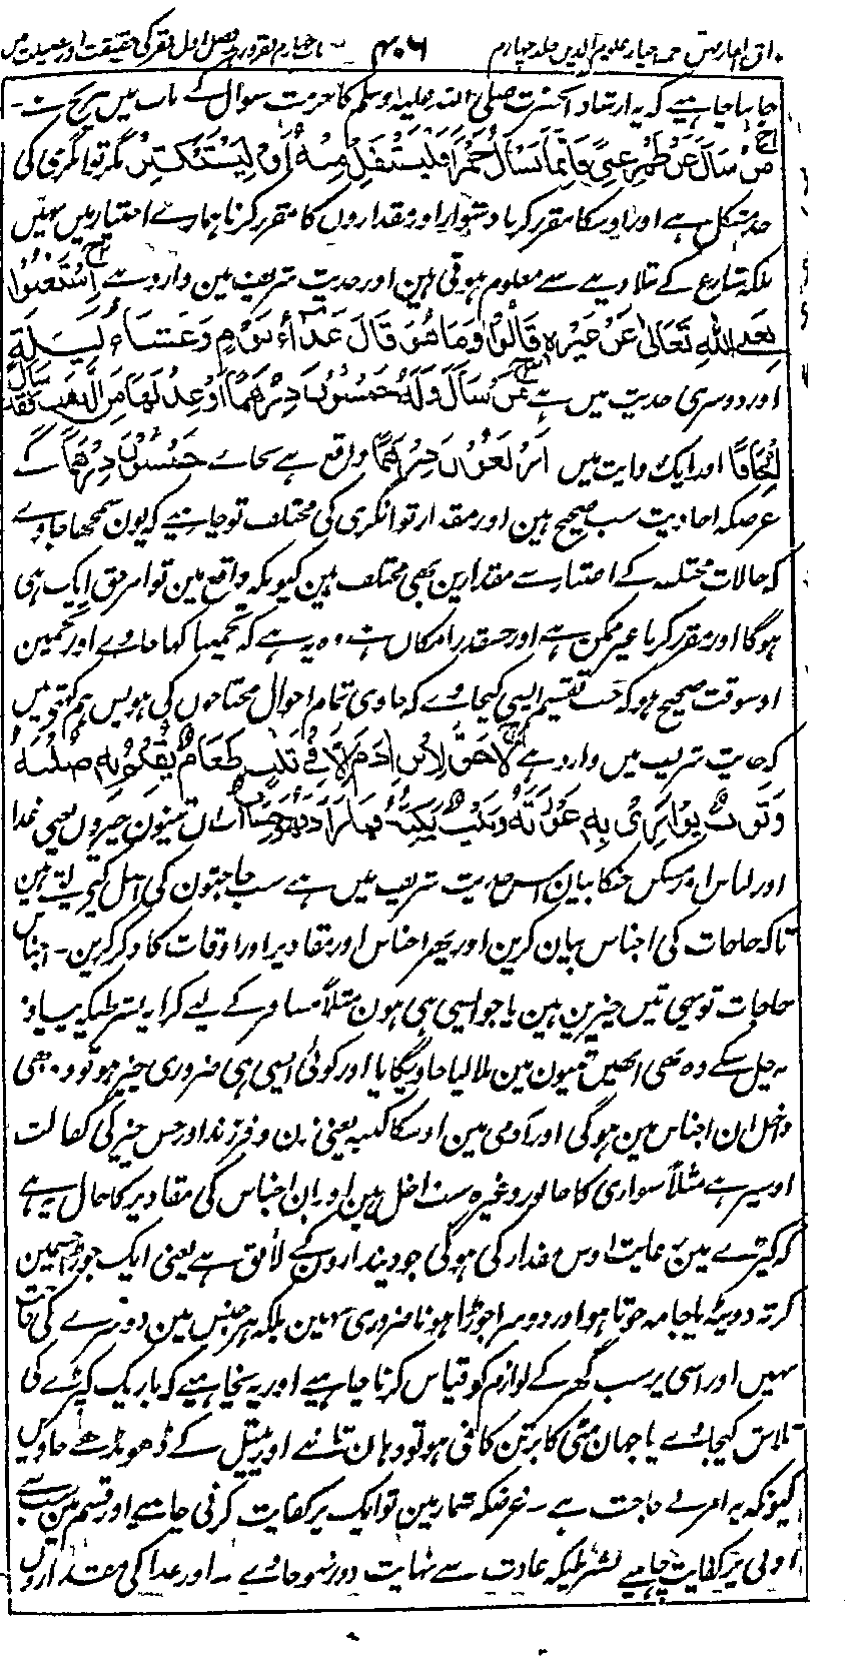 مذاق العارفین ترجمہ احیاء علوم الدین جلد چہارم ۴۰۶ باب چہارم فقر و زہد فصل اول فقر کی حقیقت اور فضیلت میں
جاننا چاہیے کہ یہ ارشاد آنحضرت صلی اللہ علیہ وسلم کا حرمت سوال کے باب میں صریح ہے -
من سَأَلَ عَنْ ظَهْرِ غِنًى فَإِنَّمَا يَسْأَلُ جَمْرًا فَلْيَسْتَقِلَّ مِنْهُ أَوْ لِيَسْتَكْثِرْ مگر توانگری کی
حد مشکل ہے اور اوسکا مقرر کرنا دشوار اور مقداروں کا مقرر کرنا ہمارے اختیار میں نہیں
بلکہ شارع کے بتلا دینے سے معلوم ہوتی ہین اور حدیث شریف مین وارد ہے اِسْتَغْنُوْا
بِغِنَی اللہِ تَعَالٰی عَنْ غَیْرِہٖ قَالُوْا وَمَا هُوَ قَالَ غَدَاءُ يَوْمٍ وَعَشَاءُ لَيْلَةٍ
اور دوسری حدیث میں ہے مَنْ سَأَلَ وَلَهُ خَمْسُوْنَ دِرْهَمًا أَوْ عِدْلُهَا مِنَ الذَّهَبِ فَقَدْ سَأَلَ
اِلْحَافًا اور ایک روایت میں اَرْبَعُوْنَ دِرْهَمًا واقع ہے بجائے خَمْسُوْنَ دِرْهَمًا کے
غرضکہ احادیث سب صحیح ہین اور مقدار توانگری کی مختلف تو چاہیے کہ یون سمجھا جاوے
کہ حالات مختلفہ کے اعتبار سے مقدارین بھی مختلف ہین کیونکہ واقع مین تو امر حق ایک ہی
ہوگا اور مقرر کرنا غیر ممکن ہے اور جسقدر امکان ہے وہ یہ ہے کہ تخمیناً کہا جاوے اور تخمین
اوسوقت صحیح ہو کہ جب تقسیم ایسی کیجاوے کہ حاوی تمام احوال محتاجوں کی ہو پس ہم کہتے ہیں
کہ حدیث شریف میں وارد ہے لَا حَقَّ لِابْنِ اٰدَمَ اِلَّا فِيْ ثَلٰثٍ طَعَامٍ يُقِيْمُ بِهٖ صُلْبَهٗ
وَثَوْبٍ يُوَارِيْ بِهٖ عَوْرَتَهٗ وَبَيْتٍ يَكُنُّهٗ فَمَا زَادَ فَهُوَ حِسَابٌ ان تینون چیزوں یعنی غذا
اور لباس اور مسکن جنکا بیان اس حدیث شریف میں ہے سب حاجتون کی اصل کیے لیتے ہین
تاکہ حاجات کی اجناس بیان کرین اور پھر اجناس اور مقادیر اور اوقات کا ذکر کرین - اجناس
حاجات تو یہی تین چیزین ہین یا جو ایسی ہی ہون مثلاً مسافر کے لیے کرایہ بشرطیکہ پیادہ
نہ چل سکے وہ بھی انھیں تینون مین ملا لیا جاویگا یا اور کوئی ایسی ہی ضروری چیز ہو تو وہ بھی
داخل ان اجناس مین ہوگی اور آدمی مین اوسکا کنبہ یعنی زن و فرزند اور جس چیز کی کفالت
اوسپر ہے مثلاً سواری کا جانور وغیرہ سب داخل ہین اور ان اجناس کی مقادیر کا حال یہ ہے
کہ کپڑے مین رعایت اوس مقدار کی ہوگی جو دیندارون کے لائق ہے یعنی ایک جوڑا جسمین
کرتہ دوپٹہ پاجامہ جوتا ہو اور دوسرا جوڑا ہونا ضروری نہین بلکہ ہر جنس مین دوسرے کی حاجت
نہیں اور اسی پر سب گھر کے لوازم کو قیاس کرنا چاہیے اور یہ نچاہیے کہ باریک کپڑے کی
تلاش کیجاوے یا جہان مٹی کا برتن کافی ہو تو وہان تانبے اور پیتل کے ڈھونڈھے جاویں
کیونکہ یہ امر بے حاجت ہے - غرضکہ شمار مین تو ایک پر کفایت کرنی چاہیے اور قسم مین سب سے
ادنی پر کفایت چاہیے بشرطیکہ عادت سے نہایت دور نہو جاوے - اور غذا کی مقداروں